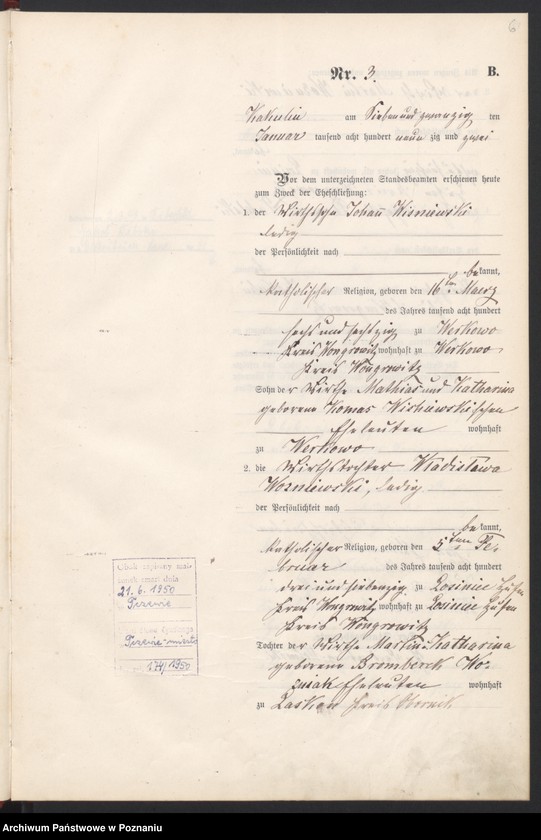 6
Nr. 3. B.
Kakulin am Sieben und zwanzig ten
Januar tausend acht hundert neun zig und zwei
Vor dem unterzeichneten Standesbeamten erschienen heute
zum Zweck der Eheschließung:
1. der Wirthssohn Johann Wisniewski
ledig
der Persönlichkeit nach
be kannt,
katholischer Religion, geboren den 16ten Maerz
des Jahres tausend acht hundert
sechs und sechszig zu Werkowo
Kreis Wongrowitz wohnhaft zu Werkowo
Kreis Wongrowitz
Sohn der Wirthe Mathias und Katharina
geborene Tomas Wisniewskischen
Eheleuten wohnhaft
zu Werkowo
2. die Wirthstochter Wladislawa
Wozniewski, ledig
der Persönlichkeit nach
be kannt,
katholischer Religion, geboren den 5ten Fe-
bruar des Jahres tausend acht hundert
drei und siebenzig zu
Kreis Wongrowitz wohnhaft zu
Kreis Wongrowitz
Tochter der Wirthe Martin Katharina
geborene Bromberek Wo-
zniak Eheleuten wohnhaft
zu Laskon Kreis Obornik
Obok zapisany mał-
żonek zmarł dnia
21.6.1950
174/1950
Archiwum Państwowe w Poznaniu